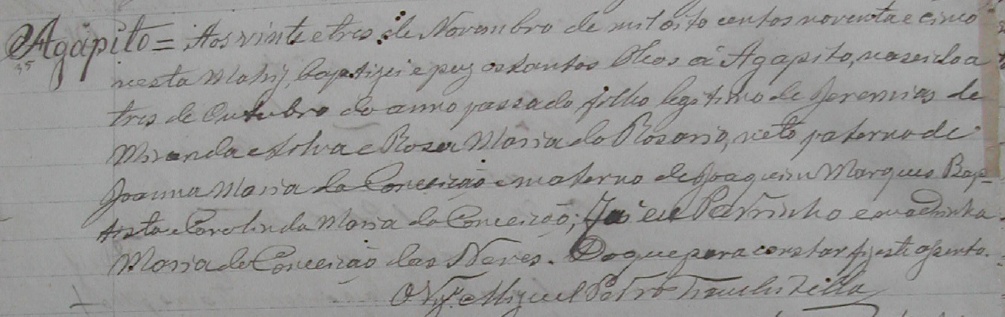 Agapito = Aos vinte e tres de Novembro de mil oito centos noventa e cinco
45
nesta Matriz, baptizei e puz os Santos Oleos á Agapito, nascido a
tres de Outubro do anno passado, filho legitimo de Jeremias de
Miranda e Silva e Rosa Maria do Rosario, neto paterno de
Joanna Maria da Conceição e materno de Joaquim Marques Bap-
tista e Carolinda Maria da Conceição; Foi eu Padrinho e madrinha
Maria da Conceição das Neves. Do que para constar fiz este assento.
O Vig.º Miguel Petro